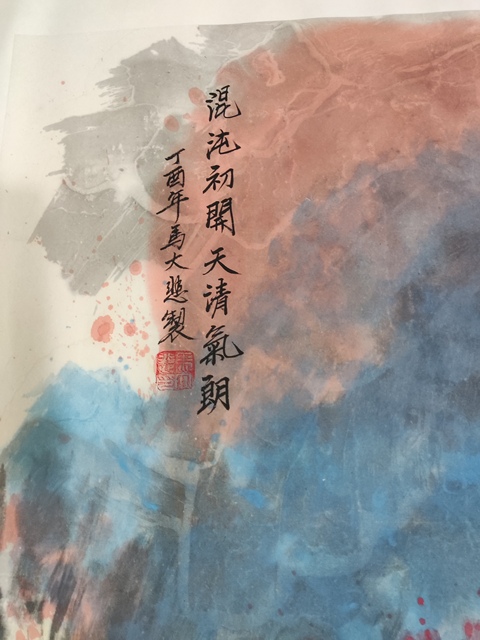 混沌初開天清氣朗
丁酉年馬大悲製